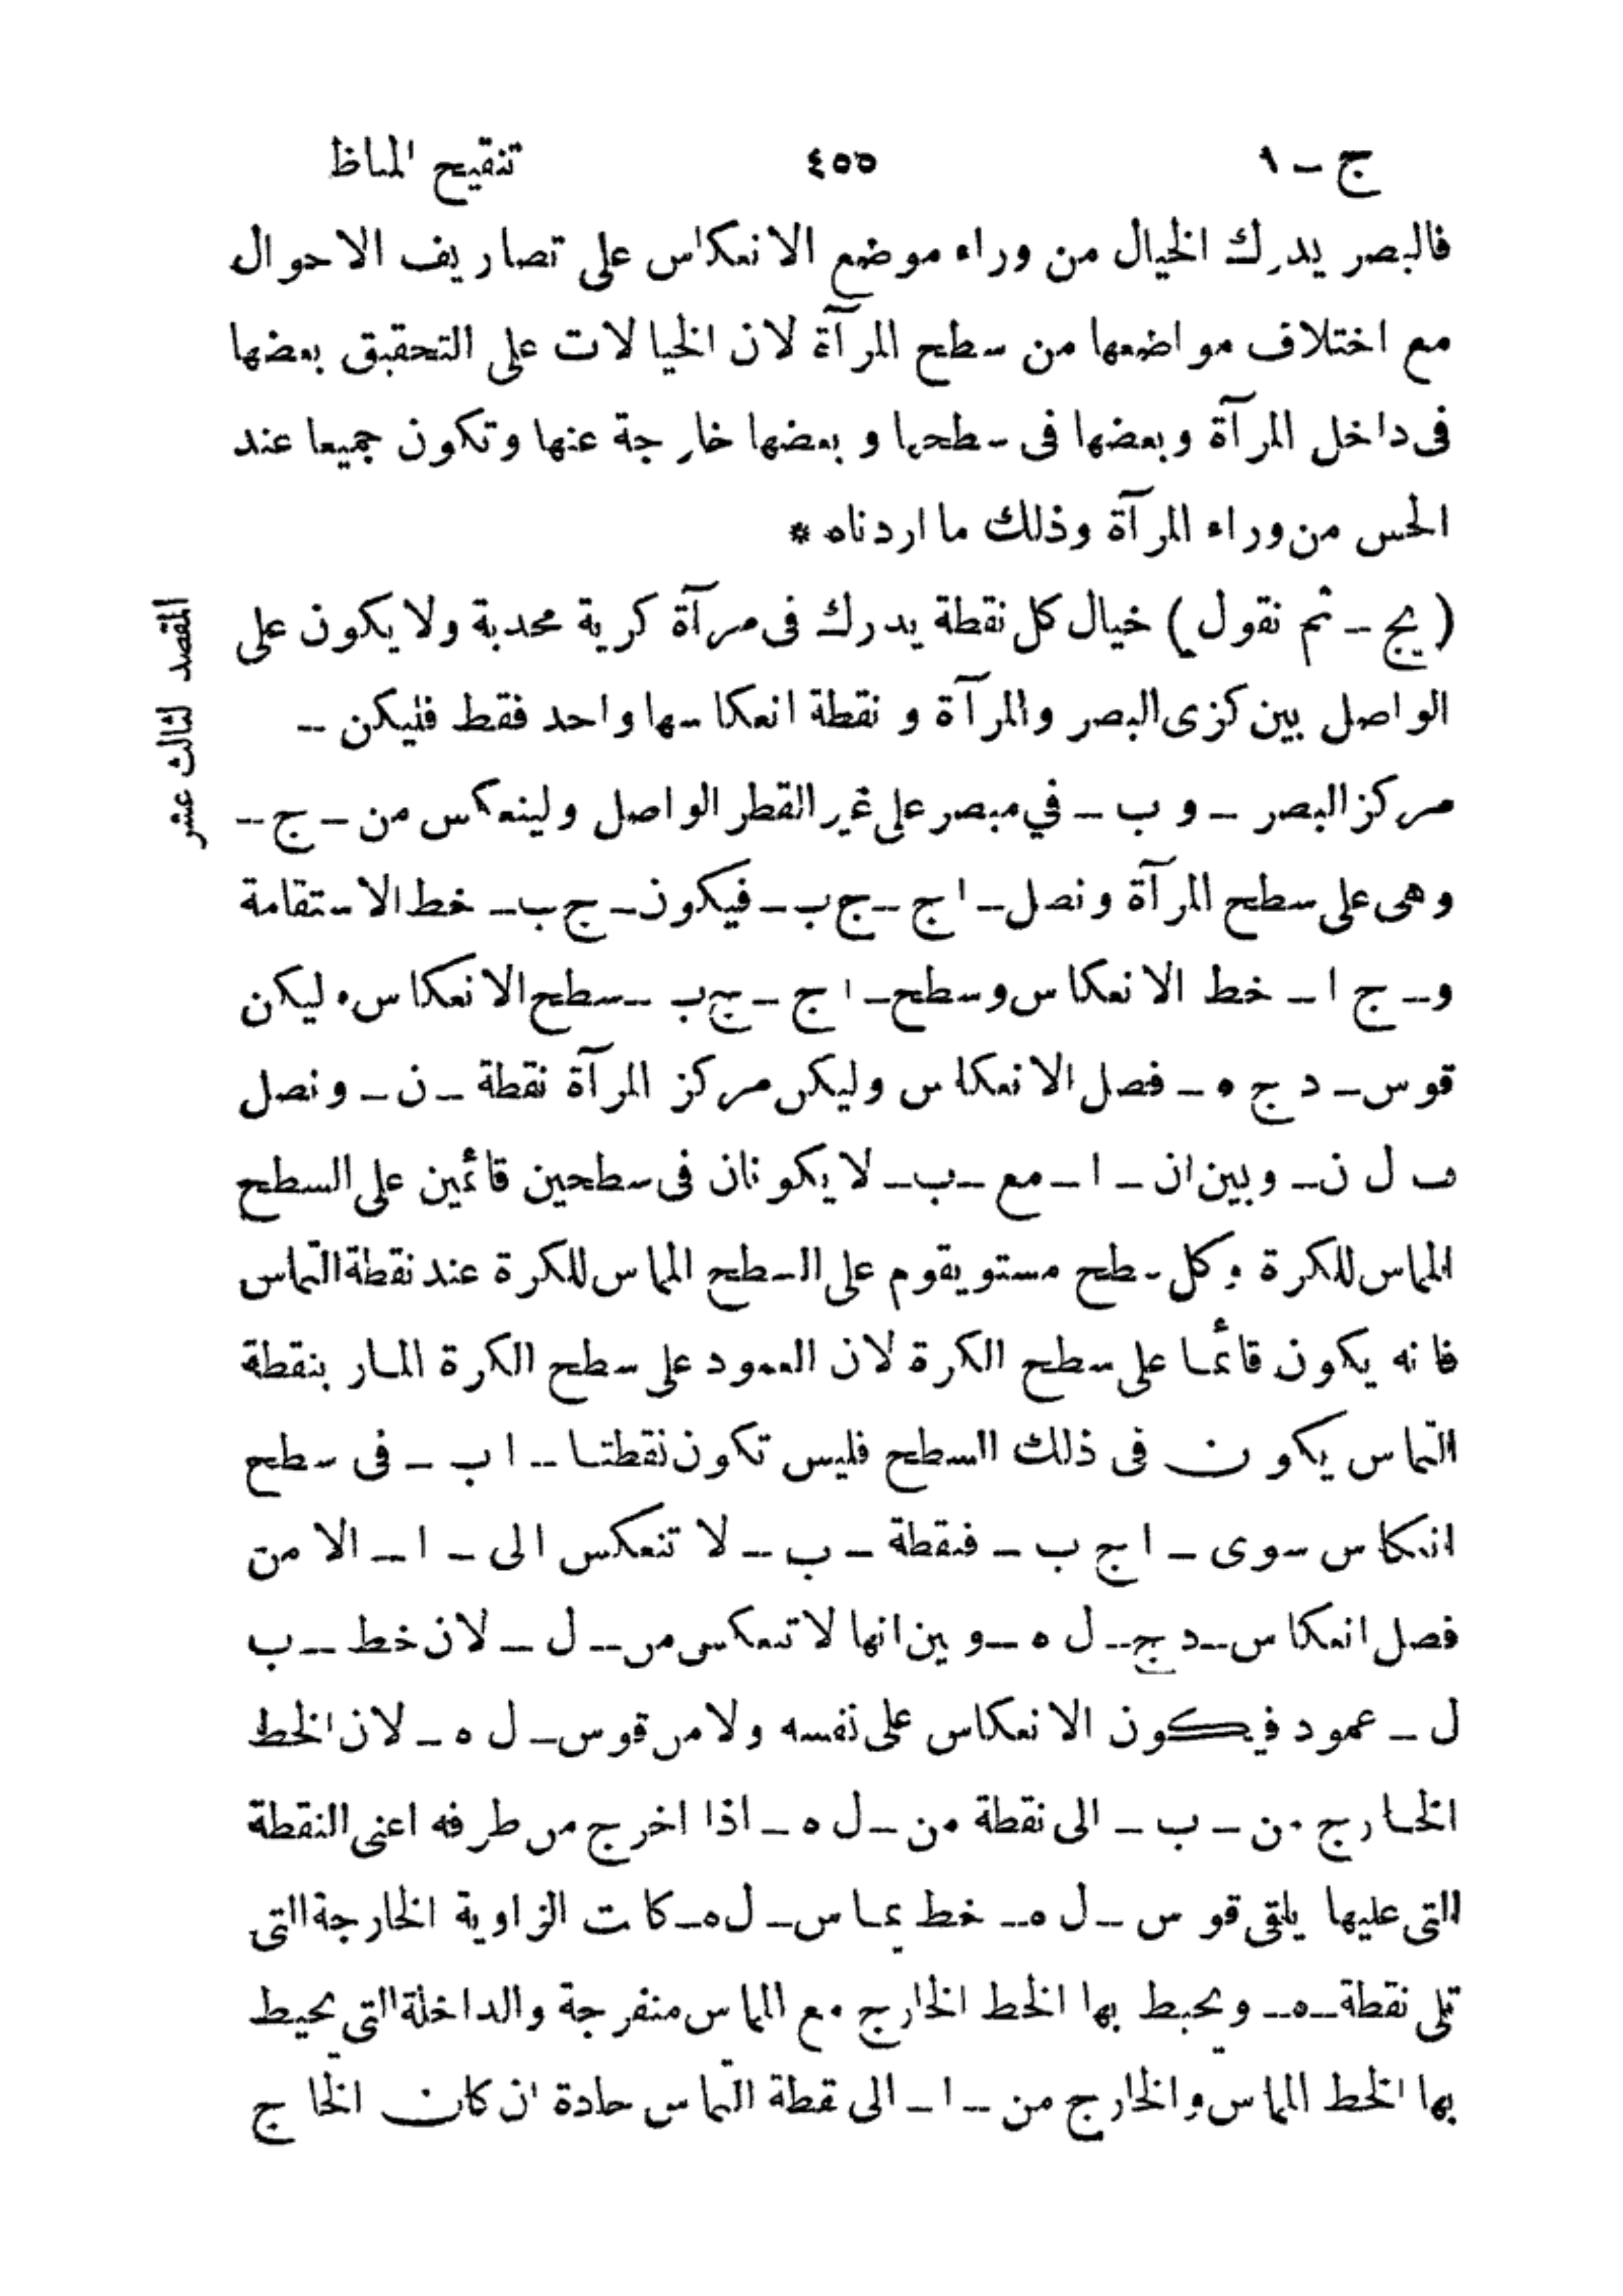 ج – ١ ٤٥٥ تنقيح المناظ
فالبصر يدرك الخيال من وراء موضع الانعكاس على تصاريف الاحوال
مع اختلاف مواضعها من سطح المرآة لان الخيالات على التحقيق بعضها
فى داخل المرآة وبعضها فى سطحها وبعضها خارجة عنها وتكون جميعا عند
الحس من وراء المرآة وذلك ما اردناه *
(يج – ثم نقول) خيال كل نقطة يدرك فى مرآة كرية محدبة ولا يكون على
الواصل بين كزى البصر والمرآة و نقطة انعكاسها واحد فقط فليكن –
مركز البصر – و ب – في مبصر على غير القطر الواصل ولينعكس من – ج –
وهى على سطح المرآة ونصل – ا ج – ج ب – فيكون – ج ب – خط الاستقامة
و – ج ا – خط الانعكاس وسطح – ا ج – ج ب – سطح الانعكاس وليكن
قوس – د ج ه – فصل الانعكاس وليكن مركز المرآة نقطة – ن – ونصل
ب ل ن – وبين ان – ا – مع – ب – لا يكونان فى سطحين قائمين على السطح
المماس للكرة وكل سطح مستو يقوم على السطح المماس للكرة عند نقطة التماس
فانه يكون قائما على سطح الكرة لان العمود على سطح الكرة المار بنقطة
التماس يكون فى ذلك السطح فليس تكون نقطتا – ا ب – فى سطح
انعكاس سوى – ا ج ب – فنقطة – ب – لا تنعكس الى – ا – الا من
فصل انعكاس – د ج – ل ه – وبين انها لا تنعكس من – ل – لان خط – ب
ل – عمود فيكون الانعكاس على نفسه ولا من قوس – ل ه – لان الخط
الخارج من – ب – الى نقطة من – ل ه – اذا اخرج من طرفه اعنى النقطة
التى عليها يلقى قوس – ل ه – خط يماس – ل ه – كانت الزاوية الخارجة التى
تلى نقطة – ه – ويحيط بها الخط الخارج مع المماس منفرجة والداخلة التى يحيط
بها الخط المماس والخارج من – ا – الى نقطة التماس حادة ان كان الخا ج
المقصد لثالث عشر